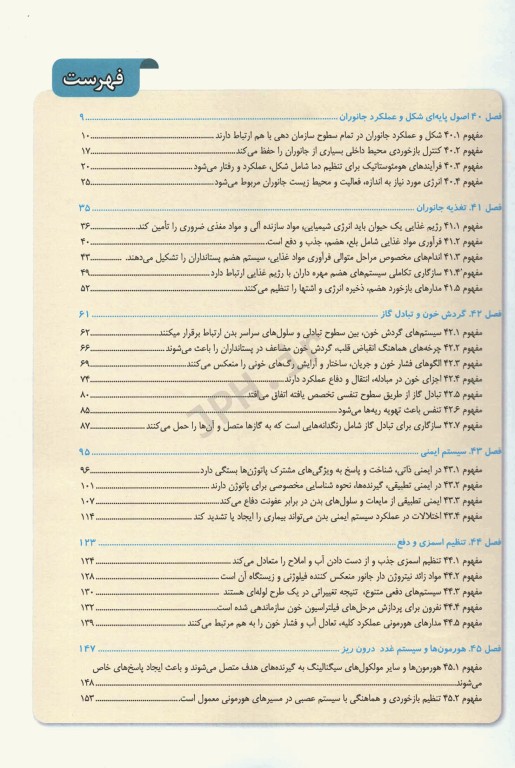 فهرست
فصل ۴۰ اصول پایه‌ای شکل و عملکرد جانوران ۹
مفهوم ۴۰.۱ شکل و عملکرد جانوران در تمام سطوح سازمان دهی با هم ارتباط دارند ۱۰
مفهوم ۴۰.۲ کنترل بازخوردی محیط داخلی بسیاری از جانوران را حفظ می‌کند ۱۷
مفهوم ۴۰.۳ فرآیندهای هومئوستاتیک برای تنظیم دما شامل شکل، عملکرد و رفتار می‌شود ۲۰
مفهوم ۴۰.۴ انرژی مورد نیاز به اندازه، فعالیت و محیط زیست جانوران مربوط می‌شود ۲۵
فصل ۴۱. تغذیه جانوران ۳۵
مفهوم ۴۱.۱ رژیم غذایی یک حیوان باید انرژی شیمیایی، مواد سازنده آلی و مواد مغذی ضروری را تأمین کند ۳۶
مفهوم ۴۱.۲ فرآوری مواد غذایی شامل بلع، هضم، جذب و دفع است ۴۰
مفهوم ۴۱.۳ اندام‌های مخصوص مراحل متوالی فرآوری مواد غذایی، سیستم هضم پستانداران را تشکیل می‌دهند. ۴۳
مفهوم ۴۱.۴ سازگاری تکاملی سیستم‌های هضم مهره داران با رژیم غذایی ارتباط دارد ۴۹
مفهوم ۴۱.۵ مدارهای بازخورد هضم، ذخیره انرژی و اشتها را تنظیم می‌کنند ۵۲
فصل ۴۲. گردش خون و تبادل گاز ۶۱
مفهوم ۴۲.۱ سیستم‌های گردش خون، بین سطوح تبادلی و سلول‌های سراسر بدن ارتباط برقرار میکنند ۶۲
مفهوم ۴۲.۲ چرخه‌های هماهنگ انقباض قلب، گردش خون مضاعف در پستانداران را باعث می‌شوند ۶۶
مفهوم ۴۲.۳ الگوهای فشار خون و جریان، ساختار و آرایش رگ‌های خونی را منعکس می‌کنند ۶۹
مفهوم ۴۲.۴ اجزای خون در مبادله، انتقال و دفاع عملکرد دارند ۷۴
مفهوم ۴۲.۵ تبادل گاز از طریق سطوح تنفسی تخصص یافته اتفاق می‌افتد ۸۰
مفهوم ۴۲.۶ تنفس باعث تهویه ریه‌ها می‌شود ۸۵
مفهوم ۴۲.۷ سازگاری برای تبادل گاز شامل رنگدانه‌هایی است که به گازها متصل و آن‌ها را حمل می‌کنند ۸۷
فصل ۴۳. سیستم ایمنی ۹۵
مفهوم ۴۳.۱ در ایمنی ذاتی، شناخت و پاسخ به ویژگی‌های مشترک پاتوژن‌ها بستگی دارد ۹۶
مفهوم ۴۳.۲ در ایمنی تطبیقی، گیرنده‌ها، نحوه شناسایی مخصوصی برای پاتوژن دارند ۱۰۱
مفهوم ۴۳.۳ ایمنی تطبیقی از مایعات و سلول‌های بدن در برابر عفونت دفاع می‌کند ۱۰۷
مفهوم ۴۳.۴ اختلالات در عملکرد سیستم ایمنی بدن می‌تواند بیماری را ایجاد یا تشدید کند ۱۱۴
فصل ۴۴. تنظیم اسمزی و دفع ۱۲۳
مفهوم ۴۴.۱ تنظیم اسمزی جذب و از دست دادن آب و املاح را متعادل می‌کند ۱۲۴
مفهوم ۴۴.۲ مواد زائد نیتروژن دار جانور منعکس کننده فیلوژنی و زیستگاه آن است ۱۲۸
مفهوم ۴۴.۳ سیستم‌های دفعی متنوع، نتیجه تغییراتی در یک طرح لوله‌ای هستند ۱۳۰
مفهوم ۴۴.۴ نفرون برای پردازش مرحل‌های فیلتراسیون خون سازماندهی شده است ۱۳۲
مفهوم ۴۴.۵ مدارهای هورمونی عملکرد کلیه، تعادل آب و فشار خون را به هم مرتبط می‌کنند ۱۳۹
فصل ۴۵. هورمون‌ها و سیستم غدد درون ریز ۱۴۷
مفهوم ۴۵.۱ هورمون‌ها و سایر مولکول‌های سیگنالینگ به گیرنده‌های هدف متصل می‌شوند و باعث ایجاد پاسخ‌های خاص
می‌شوند ۱۴۸
مفهوم ۴۵.۲ تنظیم بازخوردی و هماهنگی با سیستم عصبی در مسیرهای هورمونی معمول است ۱۵۳